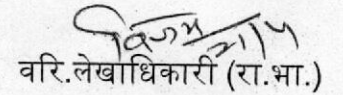 वरि.लेखाधिकारी (रा.भा.)